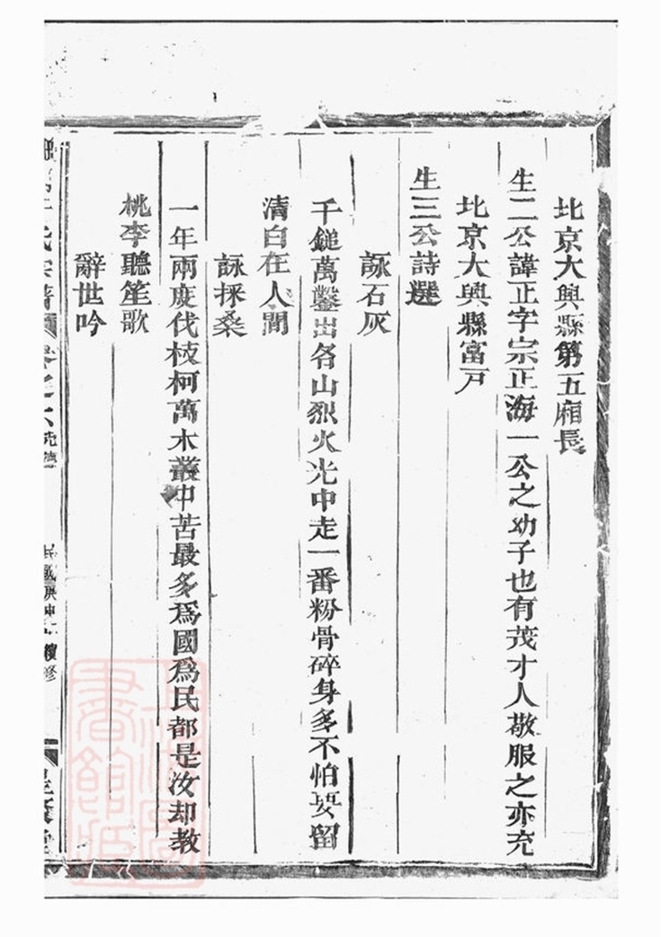 北京大興縣第五廂長
生二公諱正字宗正海一公之幼子也有茂才人敬服之亦充
北京大興縣富戸
生三公詩選
詠石灰
千鎚萬鑿出各山烈火光中走一番粉骨碎身多不怕要留
清白在人間
詠採桑
一年兩度伐枝柯萬木叢中苦最多為國為民都是汝却教
桃李聽笙歌
辭世吟